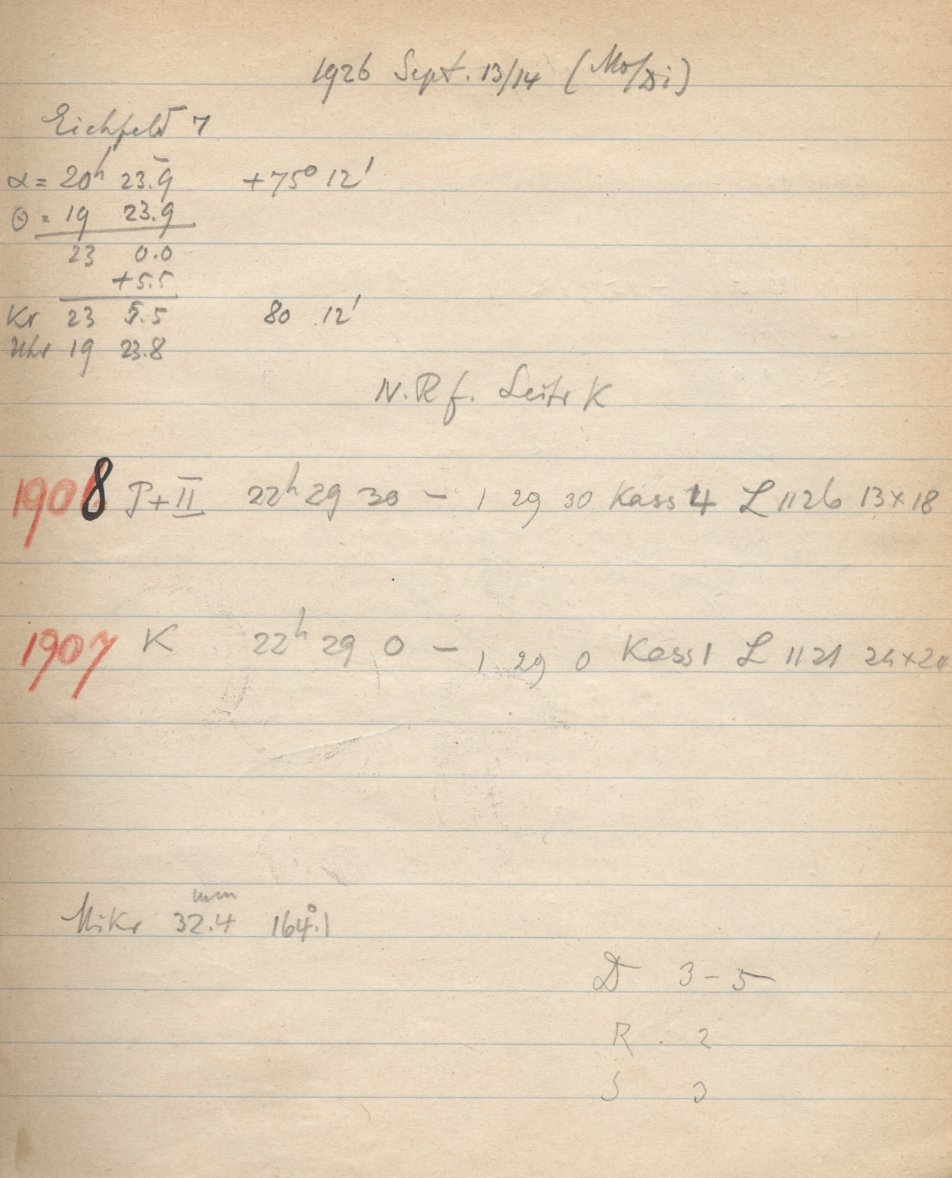 1926 Sept. 13/14 (Mo/Di)
Eichfeld 7
α = 20h 23.9 +75° 12'
Θ = 19 23.9
23 0.0
+5.5
Kr 23 5.5 80 12'
Uhr 19 23.8
N.R f. Leitr K
1908 P+II 22h 29 30 – 1 29 30 Kass 4 L 1126 13×18
1907 K 22h 29 0 – 1 29 0 Kass 1 L 1121 24×24
mm
Mikr 32.4 164°.1
D 3–5
R. 2
S 3